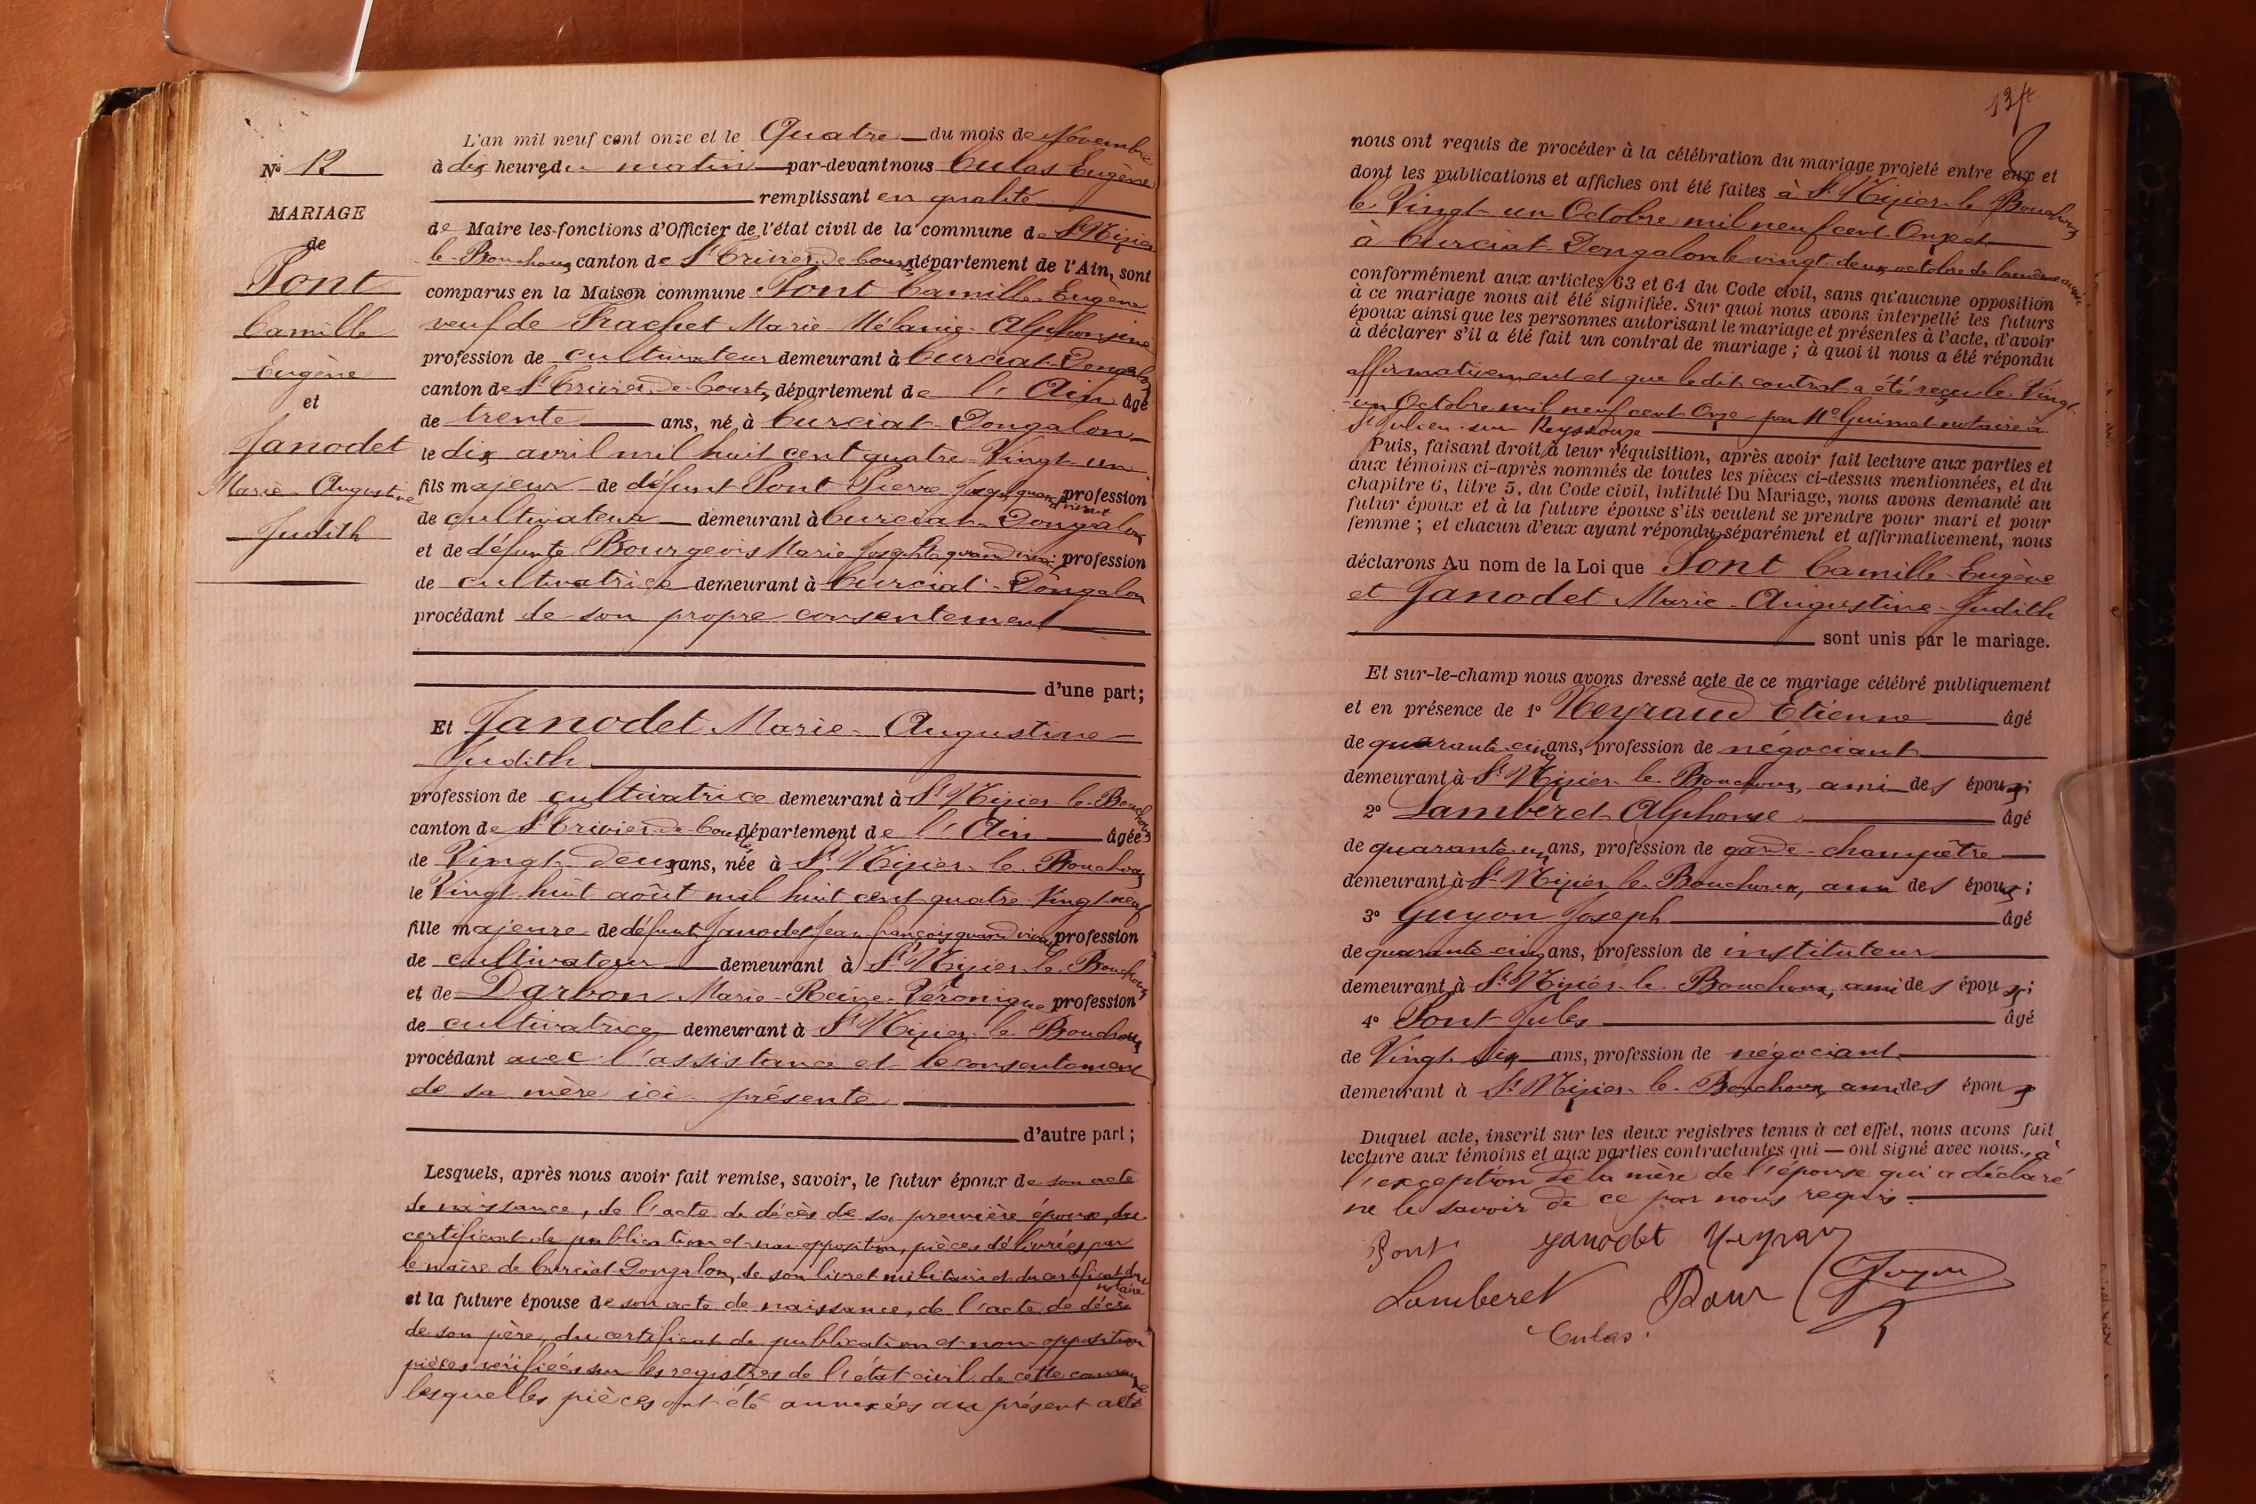 L'an mil neuf cent onze et le Quatre du mois de Novembre
Nº 12
à dix heures du matin par-devant nous Culas Eugène
remplissant en qualité
MARIAGE
de Maire les fonctions d'Officier de l'état civil de la commune de St Nizier
de
le-Bouchoux canton de St Trivier-de-Courtes département de l'Ain, sont
Pont
comparus en la Maison commune Pont Camille-Eugène
Camille
veuf de Trachet Marie-Mélanie-Alphonsine
Eugène
profession de cultivateur demeurant à Curciat-Dongalon
et
canton de St Trivier-de-Courtes, département de l'Ain âgé
de trente ans, né à Curciat-Dongalon
Janodet
le dix avril mil huit cent quatre-Vingt-un
Marie-Augustine
fils majeur de défunt Pont Pierre Joseph quand vivait profession
Judith
de cultivateur demeurant à Curciat-Dongalon
et de défunte Bourgeois Marie Josephte quand vivait profession
de cultivatrice demeurant à Curciat-Dongalon
procédant de son propre consentement
d'une part;
Et Janodet Marie-Augustine
Judith
profession de cultivatrice demeurant à St Nizier-le-Bouchoux
canton de St Trivier-de-Courtes département de l'Ain âgée
de Vingt-deux ans, née à St Nizier-le-Bouchoux
le Vingt-huit août mil huit cent quatre-Vingt-neuf
fille majeure de défunt Janodet Jean François quand vivait profession
de cultivateur demeurant à St Nizier-le-Bouchoux
et de Darbon Marie-Reine-Véronique profession
de cultivatrice demeurant à St Nizier-le-Bouchoux
procédant avec l'assistance et le consentement
de sa mère ici présente
d'autre part;
Lesquels, après nous avoir fait remise, savoir, le futur époux de son acte
de naissance, de l'acte de décès de sa première épouse, du
certificat de publication et non opposition, pièces délivrées par
le maire de Curciat-Dongalon, de son livret militaire et du certificat du notaire
et la future épouse de son acte de naissance, de l'acte de décès
de son père, du certificat de publication et non-opposition
pièces vérifiées sur les registres de l'état-civil de cette commune
lesquelles pièces ont été annexées au présent acte
134
nous ont requis de procéder à la célébration du mariage projeté entre eux et
dont les publications et affiches ont été faites à St Nizier-le-Bouchoux
le Vingt-un Octobre mil neuf cent Onze et
à Curciat-Dongalon le vingt-deux octobre de la même année
conformément aux articles 63 et 64 du Code civil, sans qu'aucune opposition
à ce mariage nous ait été signifiée. Sur quoi nous avons interpellé les futurs
époux ainsi que les personnes autorisant le mariage et présentes à l'acte, d'avoir
à déclarer s'il a été fait un contrat de mariage ; à quoi il nous a été répondu
affirmativement et que le dit contrat a été reçu le Vingt
-un Octobre mil neuf cent Onze par Me Guimet notaire à
St Julien-sur-Reyssouze
Puis, faisant droit à leur réquisition, après avoir fait lecture aux parties et
aux témoins ci-après nommés de toutes les pièces ci-dessus mentionnées, et du
chapitre 6, titre 5, du Code civil, intitulé Du Mariage, nous avons demandé au
futur époux et à la future épouse s'ils veulent se prendre pour mari et pour
femme ; et chacun d'eux ayant répondu séparément et affirmativement, nous
déclarons Au nom de la Loi que Pont Camille-Eugène
et Janodet Marie-Augustine-Judith
sont unis par le mariage.
Et sur-le-champ nous avons dressé acte de ce mariage célébré publiquement
et en présence de 1º Neyraud Etienne âgé
de quarante-cinq ans, profession de négociant
demeurant à St Nizier-le-Bouchoux, ami des époux;
2º Lambéret Alphonse âgé
de quarante-un ans, profession de garde-champêtre
demeurant à St Nizier-le-Bouchoux, ami des époux;
3º Guyon Joseph âgé
de quarante-cinq ans, profession de instituteur
demeurant à St Nizier-le-Bouchoux, ami des époux;
4º Pont Jules âgé
de Vingt-six ans, profession de négociant
demeurant à St Nizier-le-Bouchoux ami des époux
Duquel acte, inscrit sur les deux registres tenus à cet effet, nous avons fait
lecture aux témoins et aux parties contractantes qui — ont signé avec nous, à
l'exception de la mère de l'épouse qui a déclaré
ne le savoir de ce par nous requis.
Pont Janodet Neyraud
Lamberet Pont Guyon
Culas.